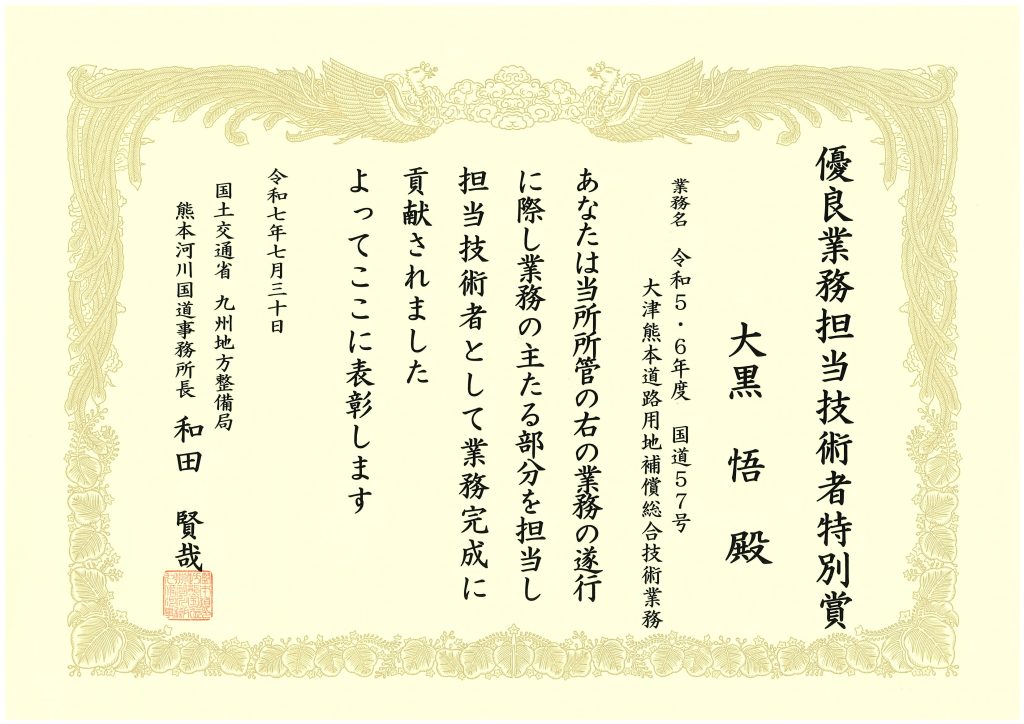 優良業務担当技術者特別賞
大黒 悟 殿
業務名 令和5・6年度 国道57号
大津熊本道路用地補償総合技術業務
あなたは当所所管の右の業務の遂行
に際し業務の主たる部分を担当し
担当技術者として業務完成に
貢献されました
よってここに表彰します
令和七年七月三十日
国土交通省 九州地方整備局
熊本河川国道事務所長 和田 賢哉